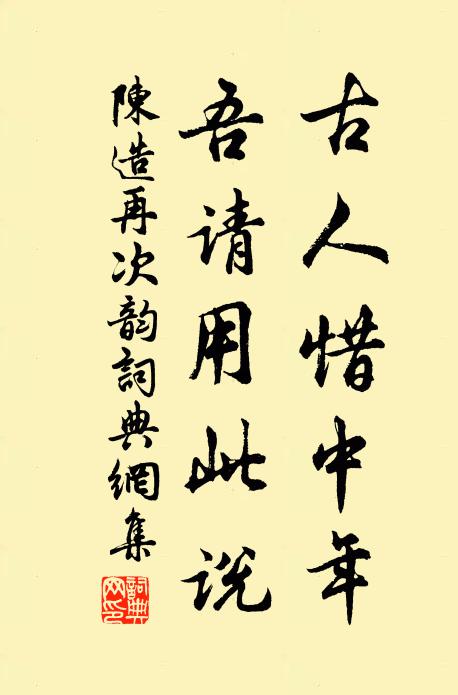 古人惜中年
吾请用此说
陳造再次韵詞典網集
詞典网印